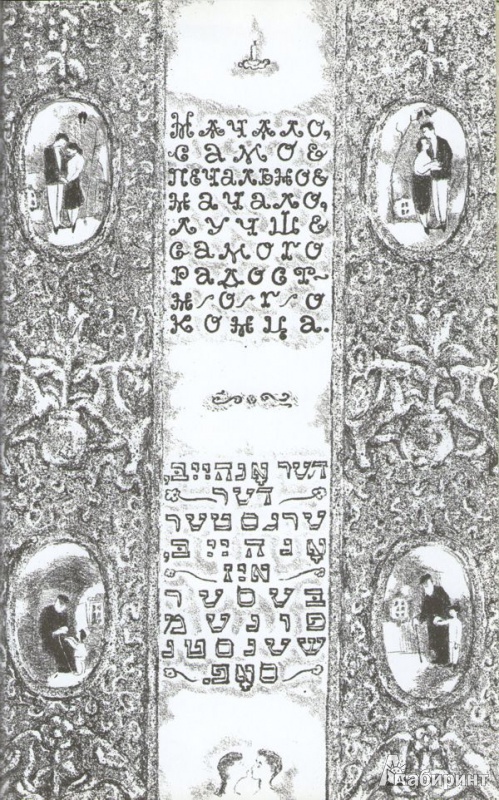 НАЧАЛО,
САМОЕ
ПЕЧАЛЬНОЕ
НАЧАЛО,
ЛУЧШЕ
САМОГО
РАДОСТ-
НОГО
КОНЦА.
דער אָנהייב,
דער
ערגסטער
אָנהייב,
איז
בעסער
פונעמ
שענסטנ
סאָפ.
Лабиринт